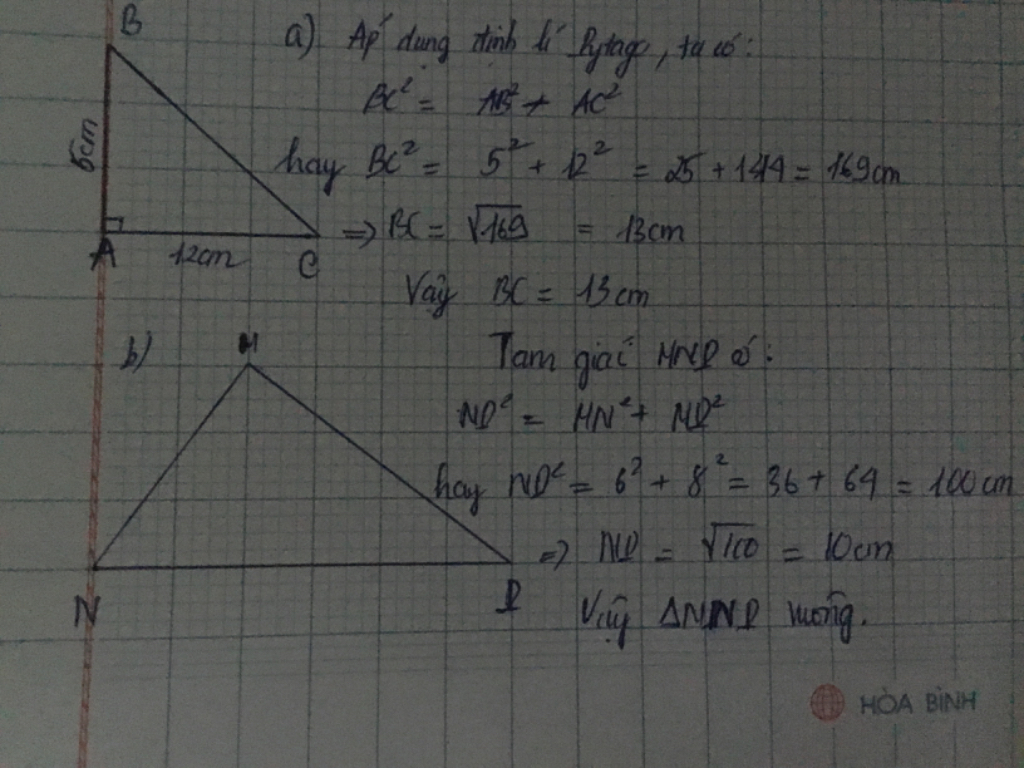 B
a) Áp dụng định lí Pytago, ta có:
BC² = AB² + AC²
5cm
hay BC² = 5² + 12² = 25 + 144 = 169cm
A 12cm C
=> BC = √169 = 13cm
Vậy BC = 13cm
b) M
Tam giác MNP có:
NP² = MN² + MP²
hay NP² = 6² + 8² = 36 + 64 = 100cm
=> NP = √100 = 10cm
N P
Vậy ΔMNP vuông.
HÒA BÌNH